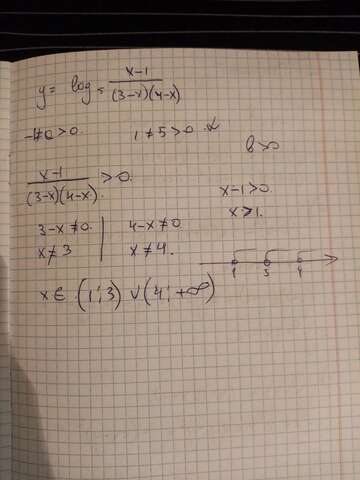 y = log = x-1 / (3-x)(4-x)
>0. 1 ≠ 5 > 0.
b > 0
x-1 / (3-x)(4-x) > 0.
x-1 > 0.
x > 1.
3-x ≠ 0. | 4-x ≠ 0
x ≠ 3 | x ≠ 4.
1 3 4
x ∈ (1; 3) ∪ (4; +∞)